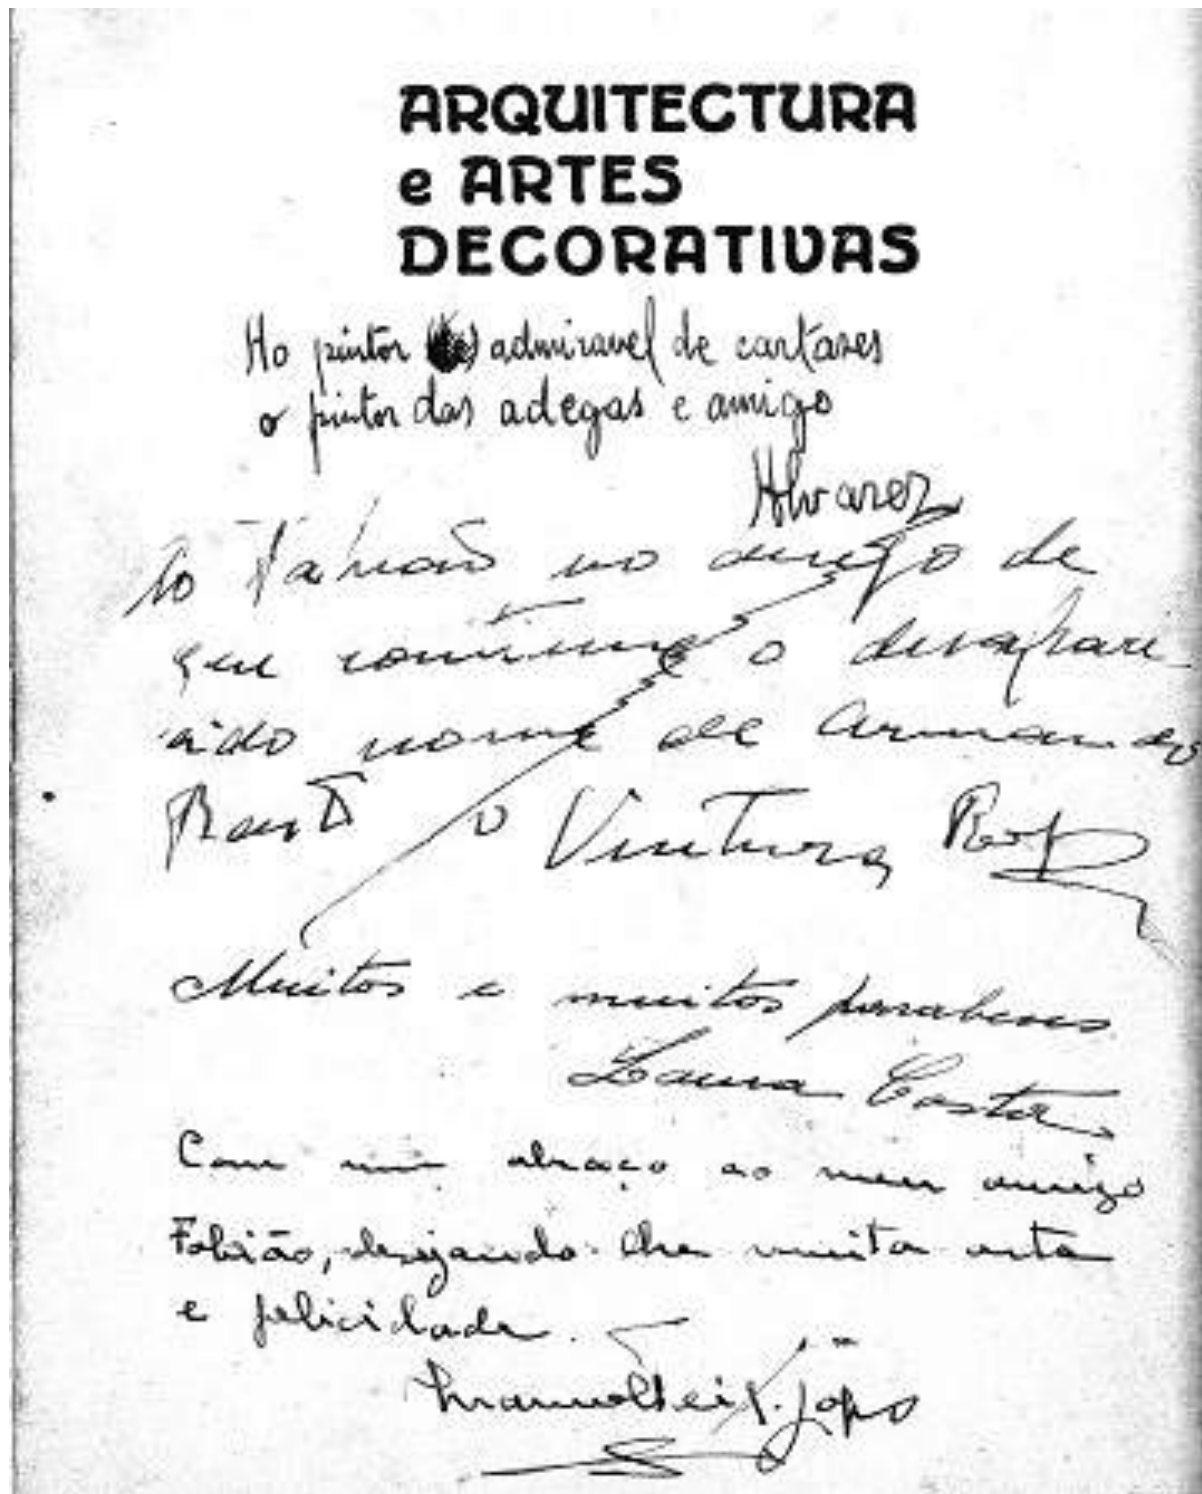 ARQUITECTURA
e ARTES
DECORATIVAS
Ao pintor admiravel de cartazes
o pintor das adegas e amigo
Alvarez
Ao Fabião no desejo de
que continue o desapare-
cido nome de Armando
Basto o Ventura
Muitos e muitos parabens
Laura Costa
Com um abraço ao meu amigo
Fabião, desejando-lhe muita arte
e felicidade.